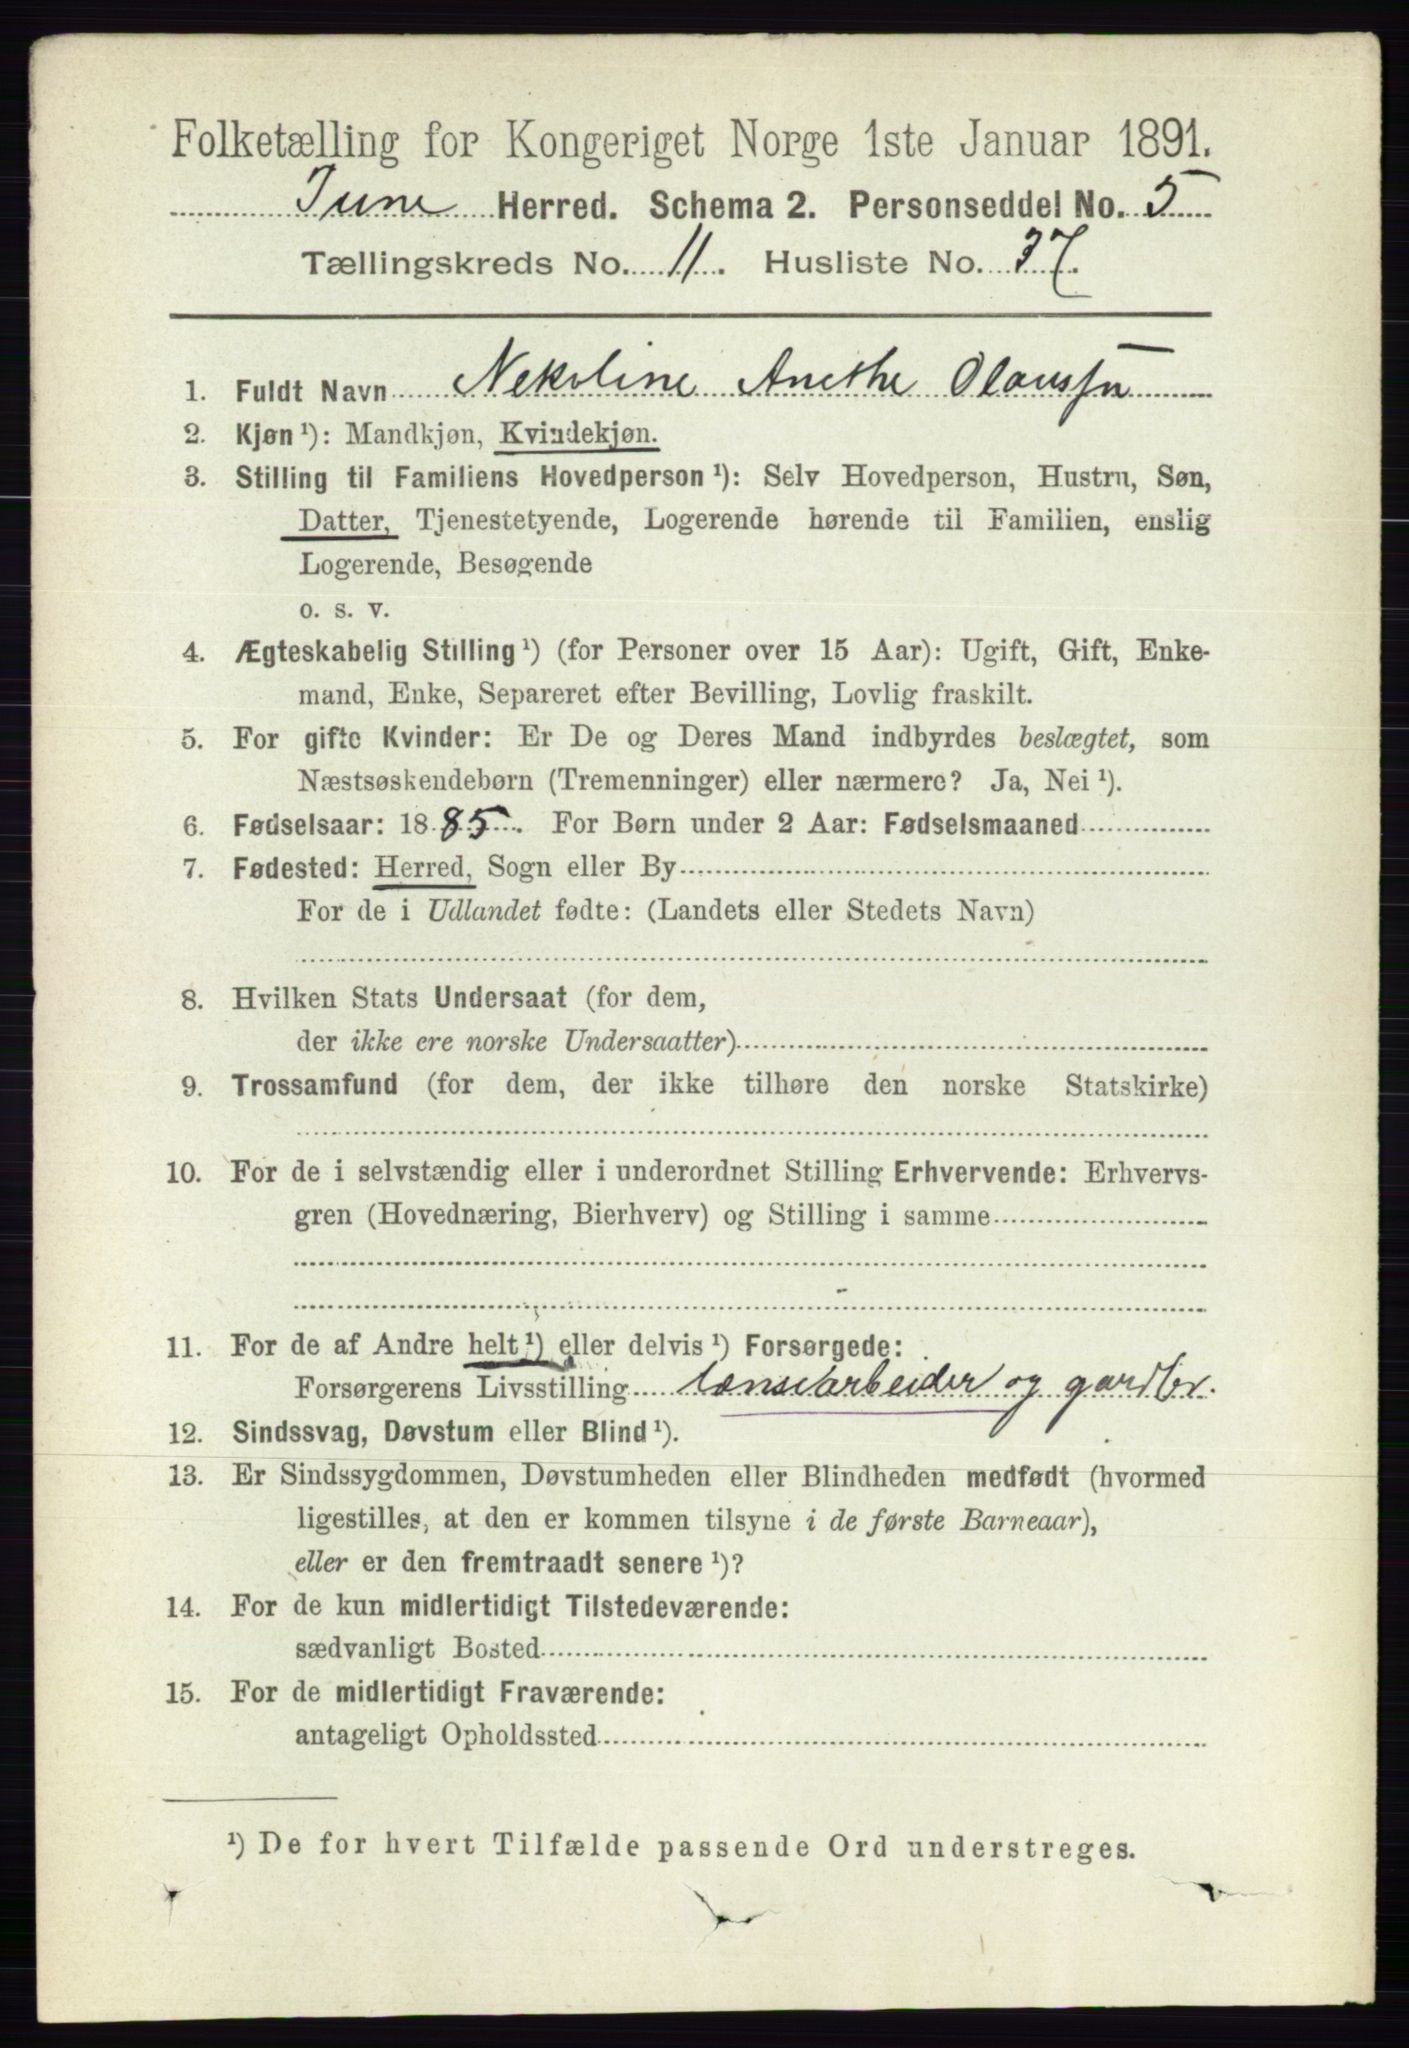 Folketælling for Kongeriget Norge 1ste Januar 1891.
Tune Herred. Schema 2. Personseddel No. 5
Tællingskreds No. 11. Husliste No. 37.
1. Fuldt Navn Nekoline Anethe Olaussn
2. Kjøn ¹): Mandkjøn, Kvindekjøn.
3. Stilling til Familiens Hovedperson ¹): Selv Hovedperson, Hustru, Søn,
Datter, Tjenestetyende, Logerende hørende til Familien, enslig
Logerende, Besøgende
o. s. v.
4. Ægteskabelig Stilling ¹) (for Personer over 15 Aar): Ugift, Gift, Enke-
mand, Enke, Separeret efter Bevilling, Lovlig fraskilt.
5. For gifte Kvinder: Er De og Deres Mand indbyrdes beslægtet, som
Næstsøskendebørn (Tremenninger) eller nærmere? Ja, Nei ¹).
6. Fødselsaar: 1885. For Børn under 2 Aar: Fødselsmaaned
7. Fødested: Herred, Sogn eller By
For de i Udlandet fødte: (Landets eller Stedets Navn)
8. Hvilken Stats Undersaat (for dem,
der ikke ere norske Undersaatter)
9. Trossamfund (for dem, der ikke tilhøre den norske Statskirke)
10. For de i selvstændig eller i underordnet Stilling Erhvervende: Erhvervs-
gren (Hovednæring, Bierhverv) og Stilling i samme
11. For de af Andre helt ¹) eller delvis ¹) Forsørgede:
Forsørgerens Livsstilling lænsearbeider og gardbr.
12. Sindssvag, Døvstum eller Blind ¹).
13. Er Sindssygdommen, Døvstumheden eller Blindheden medfødt (hvormed
ligestilles, at den er kommen tilsyne i de første Barneaar),
eller er den fremtraadt senere ¹)?
14. For de kun midlertidigt Tilstedeværende:
sædvanligt Bosted
15. For de midlertidigt Fraværende:
antageligt Opholdssted
¹) De for hvert Tilfælde passende Ord understreges.